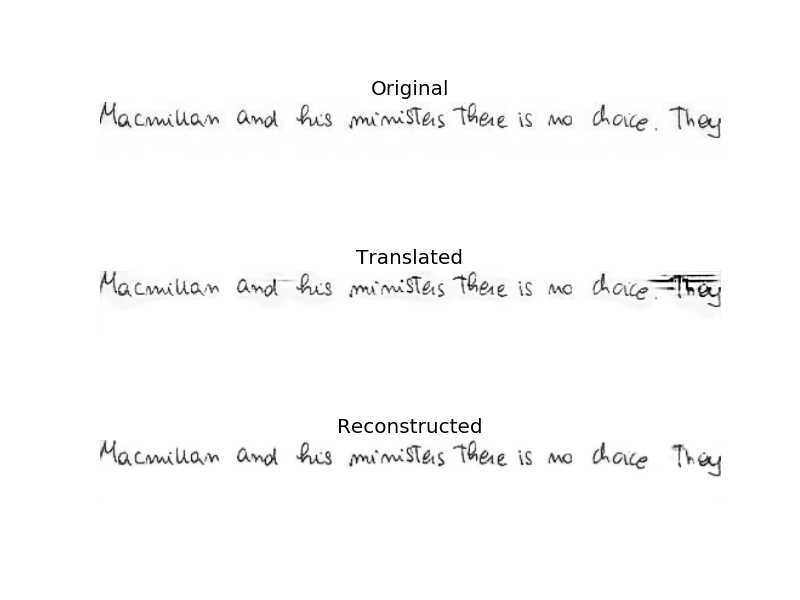 Original
Macmillan and his ministers There is no choice. They
Translated
Macmillan and his ministers There is no choice. They
Reconstructed
Macmillan and his ministers There is no choice They